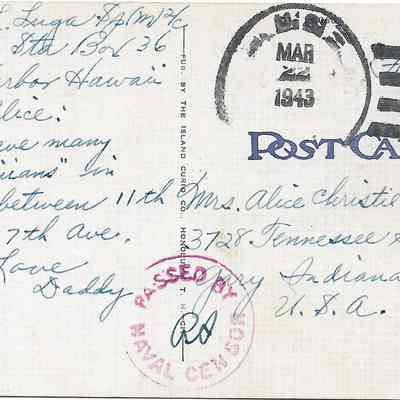 Luga Sp M 2/c
Sta Box 36
arbor Hawaii
lice:
eve many
iians" in
between 11th
7th Ave.
Love
Daddy
PUB. BY THE ISLAND CURIO CO., HONOLULU, T. H.
MAR
22
1943
POST CA
Mrs. Alice Christie
3728 Tennessee
Gary Indiana
U.S.A.
PASSED BY
NAVAL CENSOR